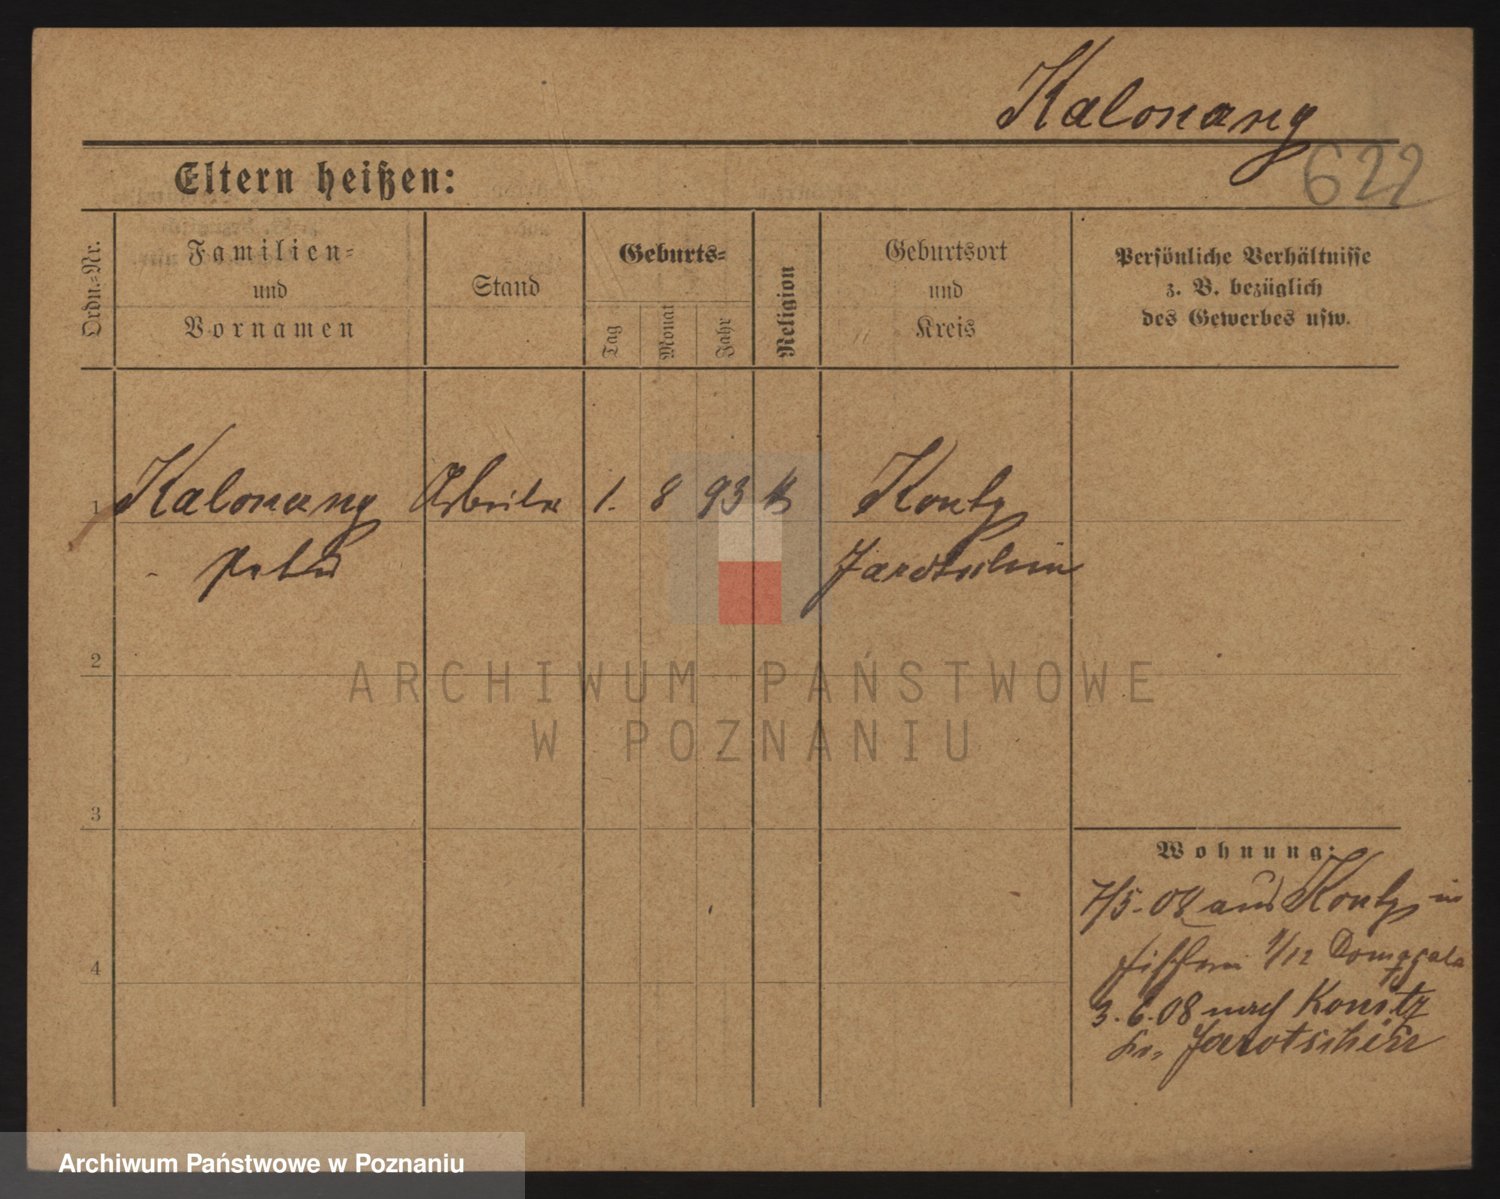 Kalonang
622
Eltern heißen:
Ordn.-Nr.
Familien-
und
Vornamen
Stand
Geburts-
Tag
Monat
Jahr
Religion
Geburtsort
und
Kreis
Persönliche Verhältnisse
z. B. bezüglich
des Gewerbes usw.
1 Kalonang Arbeiter 1. 8 93 k
Jarotschin
2
ARCHIWUM PAŃSTWOWE
W POZNANIU
3
4
Wohnung:
7/5.08 aus in
1/12
3.6.08 nach Konitz
Kr. Jarotschin
Archiwum Państwowe w Poznaniu